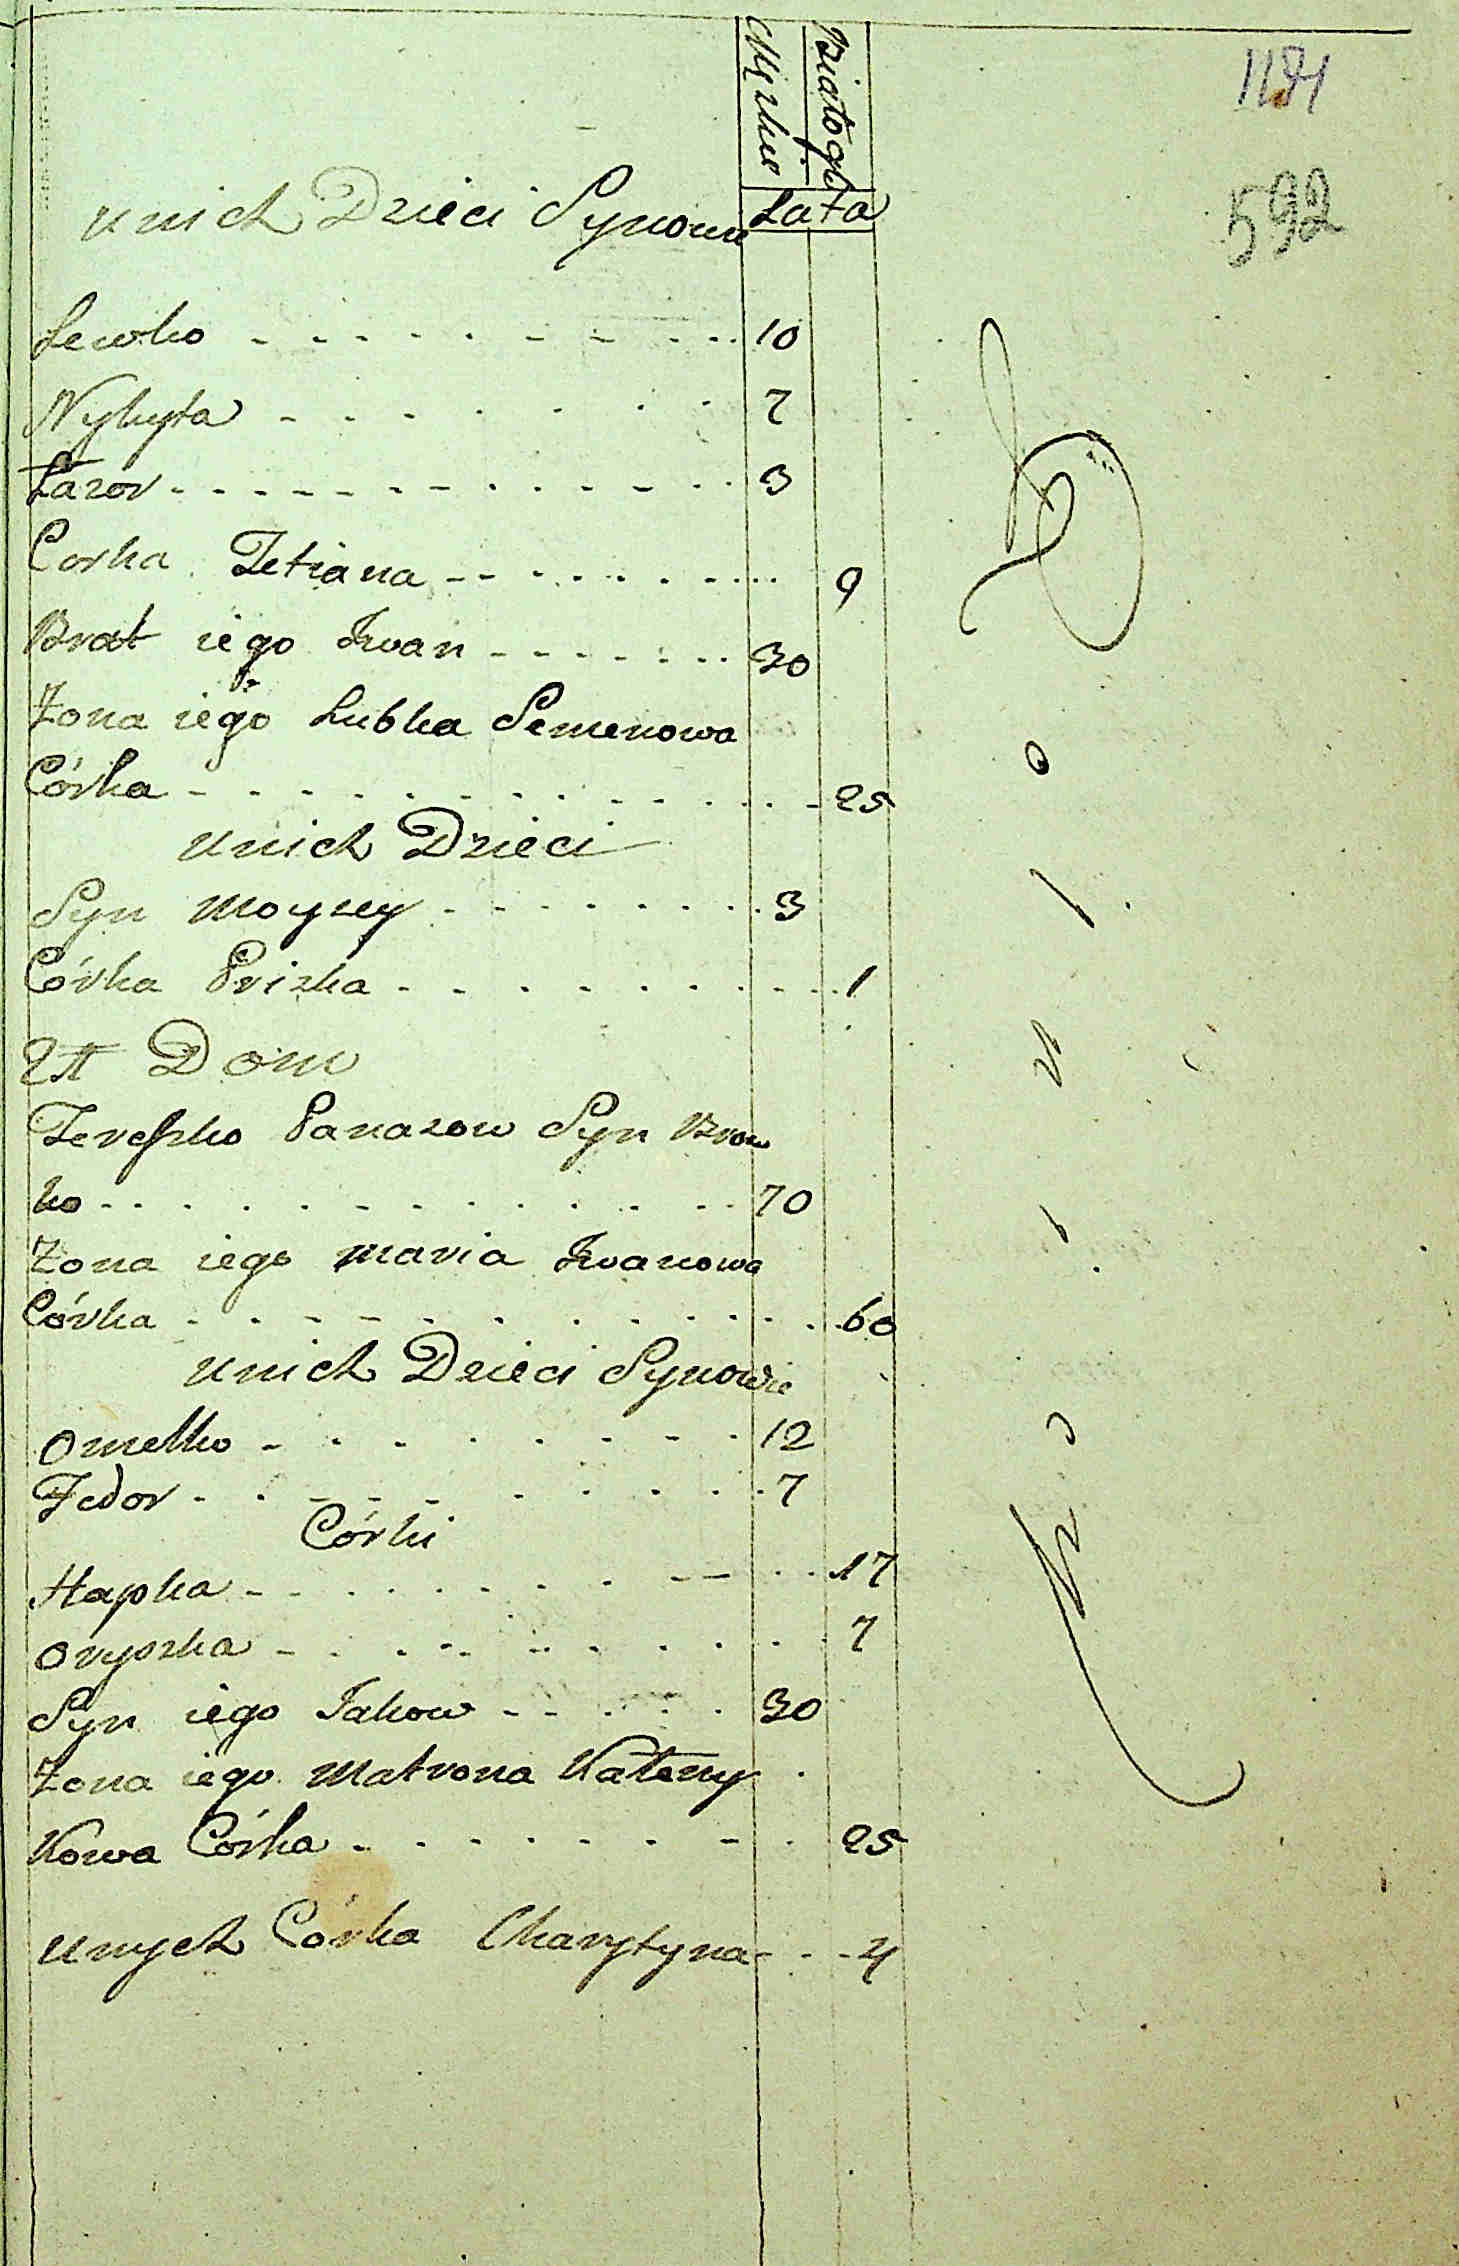 Męzkie
Białogł:
592
Lata
u nich Dzieci Synowie
Lewko - - - - - - - - 10
Nykyta - - - - - - - - 7
Łazor - - - - - - - - 3
Corka Tetiana - - - - - - - - 9
Brat iego Iwan - - - - - - - - 30
Żona iego Lubka Semenowa
Córka - - - - - - - - 25
u nich Dzieci
Syn Moyzey - - - - - - - - 3
Córka Prizka - - - - - - - - 1
Dom
Tereszko Panazow Syn Brow
ko - - - - - - - - 70
Żona iego Maria Iwanowa
Córka - - - - - - - - 60
u nich Dzieci Synowie
Omelko - - - - - - - - 12
Fedor - - - - - - - - 7
Córki
Hapka - - - - - - - - 17
Oryszka - - - - - - - - 7
Syn iego Jakow - - - - - 30
Żona iego Matrona Kateny
kowa Córka - - - - - - - - 25
u nych Córka Charytyna - - - 4